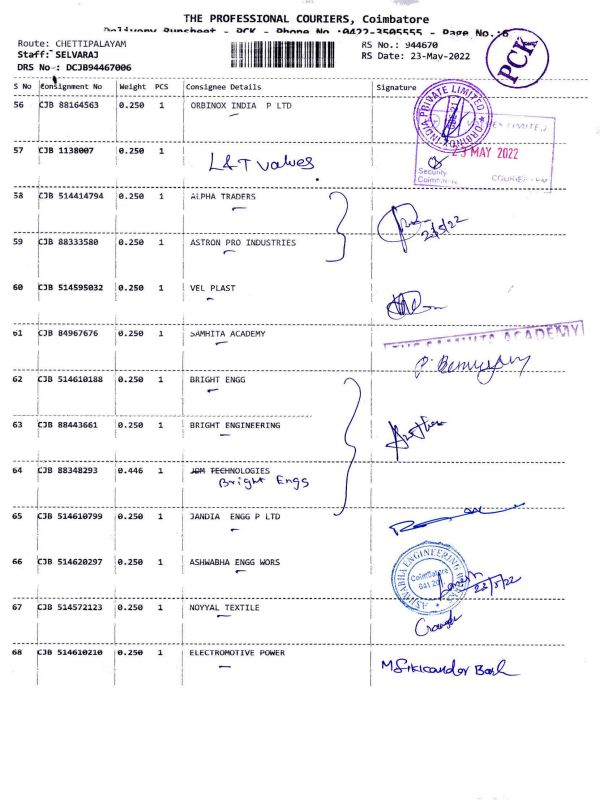 THE PROFESSIONAL COURIERS, Coimbatore
Delivery Runsheet - PCK - Phone No :0422-3505555 - Page No.:6
Route: CHETTIPALAYAM
RS No.: 944670
Staff: SELVARAJ
RS Date: 23-May-2022
DRS No : DCJB94467006
PCK
S No Consignment No Weight PCS Consignee Details Signature
56 CJB 88164563 0.250 1 ORBINOX INDIA P LTD
ORBINOX INDIA PRIVATE LIMITED
LIMITED
23 MAY 2022
Security
COURIER
57 CJB 1138007 0.250 1 L&T Valves
58 CJB 514414794 0.250 1 ALPHA TRADERS
59 CJB 88333580 0.250 1 ASTRON PRO INDUSTRIES
60 CJB 514595032 0.250 1 VEL PLAST
61 CJB 84967676 0.250 1 SAMHITA ACADEMY
THE SAMHITA ACADEMY
62 CJB 514610188 0.250 1 BRIGHT ENGG
63 CJB 88443661 0.250 1 BRIGHT ENGINEERING
64 CJB 88348293 0.446 1 JDM TECHNOLOGIES
Bright Engs
65 CJB 514610799 0.250 1 JANDIA ENGG P LTD
66 CJB 514620297 0.250 1 ASHWABHA ENGG WORS
ASHWABHA ENGINEERING
Coimbatore
23/5/22
67 CJB 514572123 0.250 1 NOYYAL TEXTILE
68 CJB 514610210 0.250 1 ELECTROMOTIVE POWER